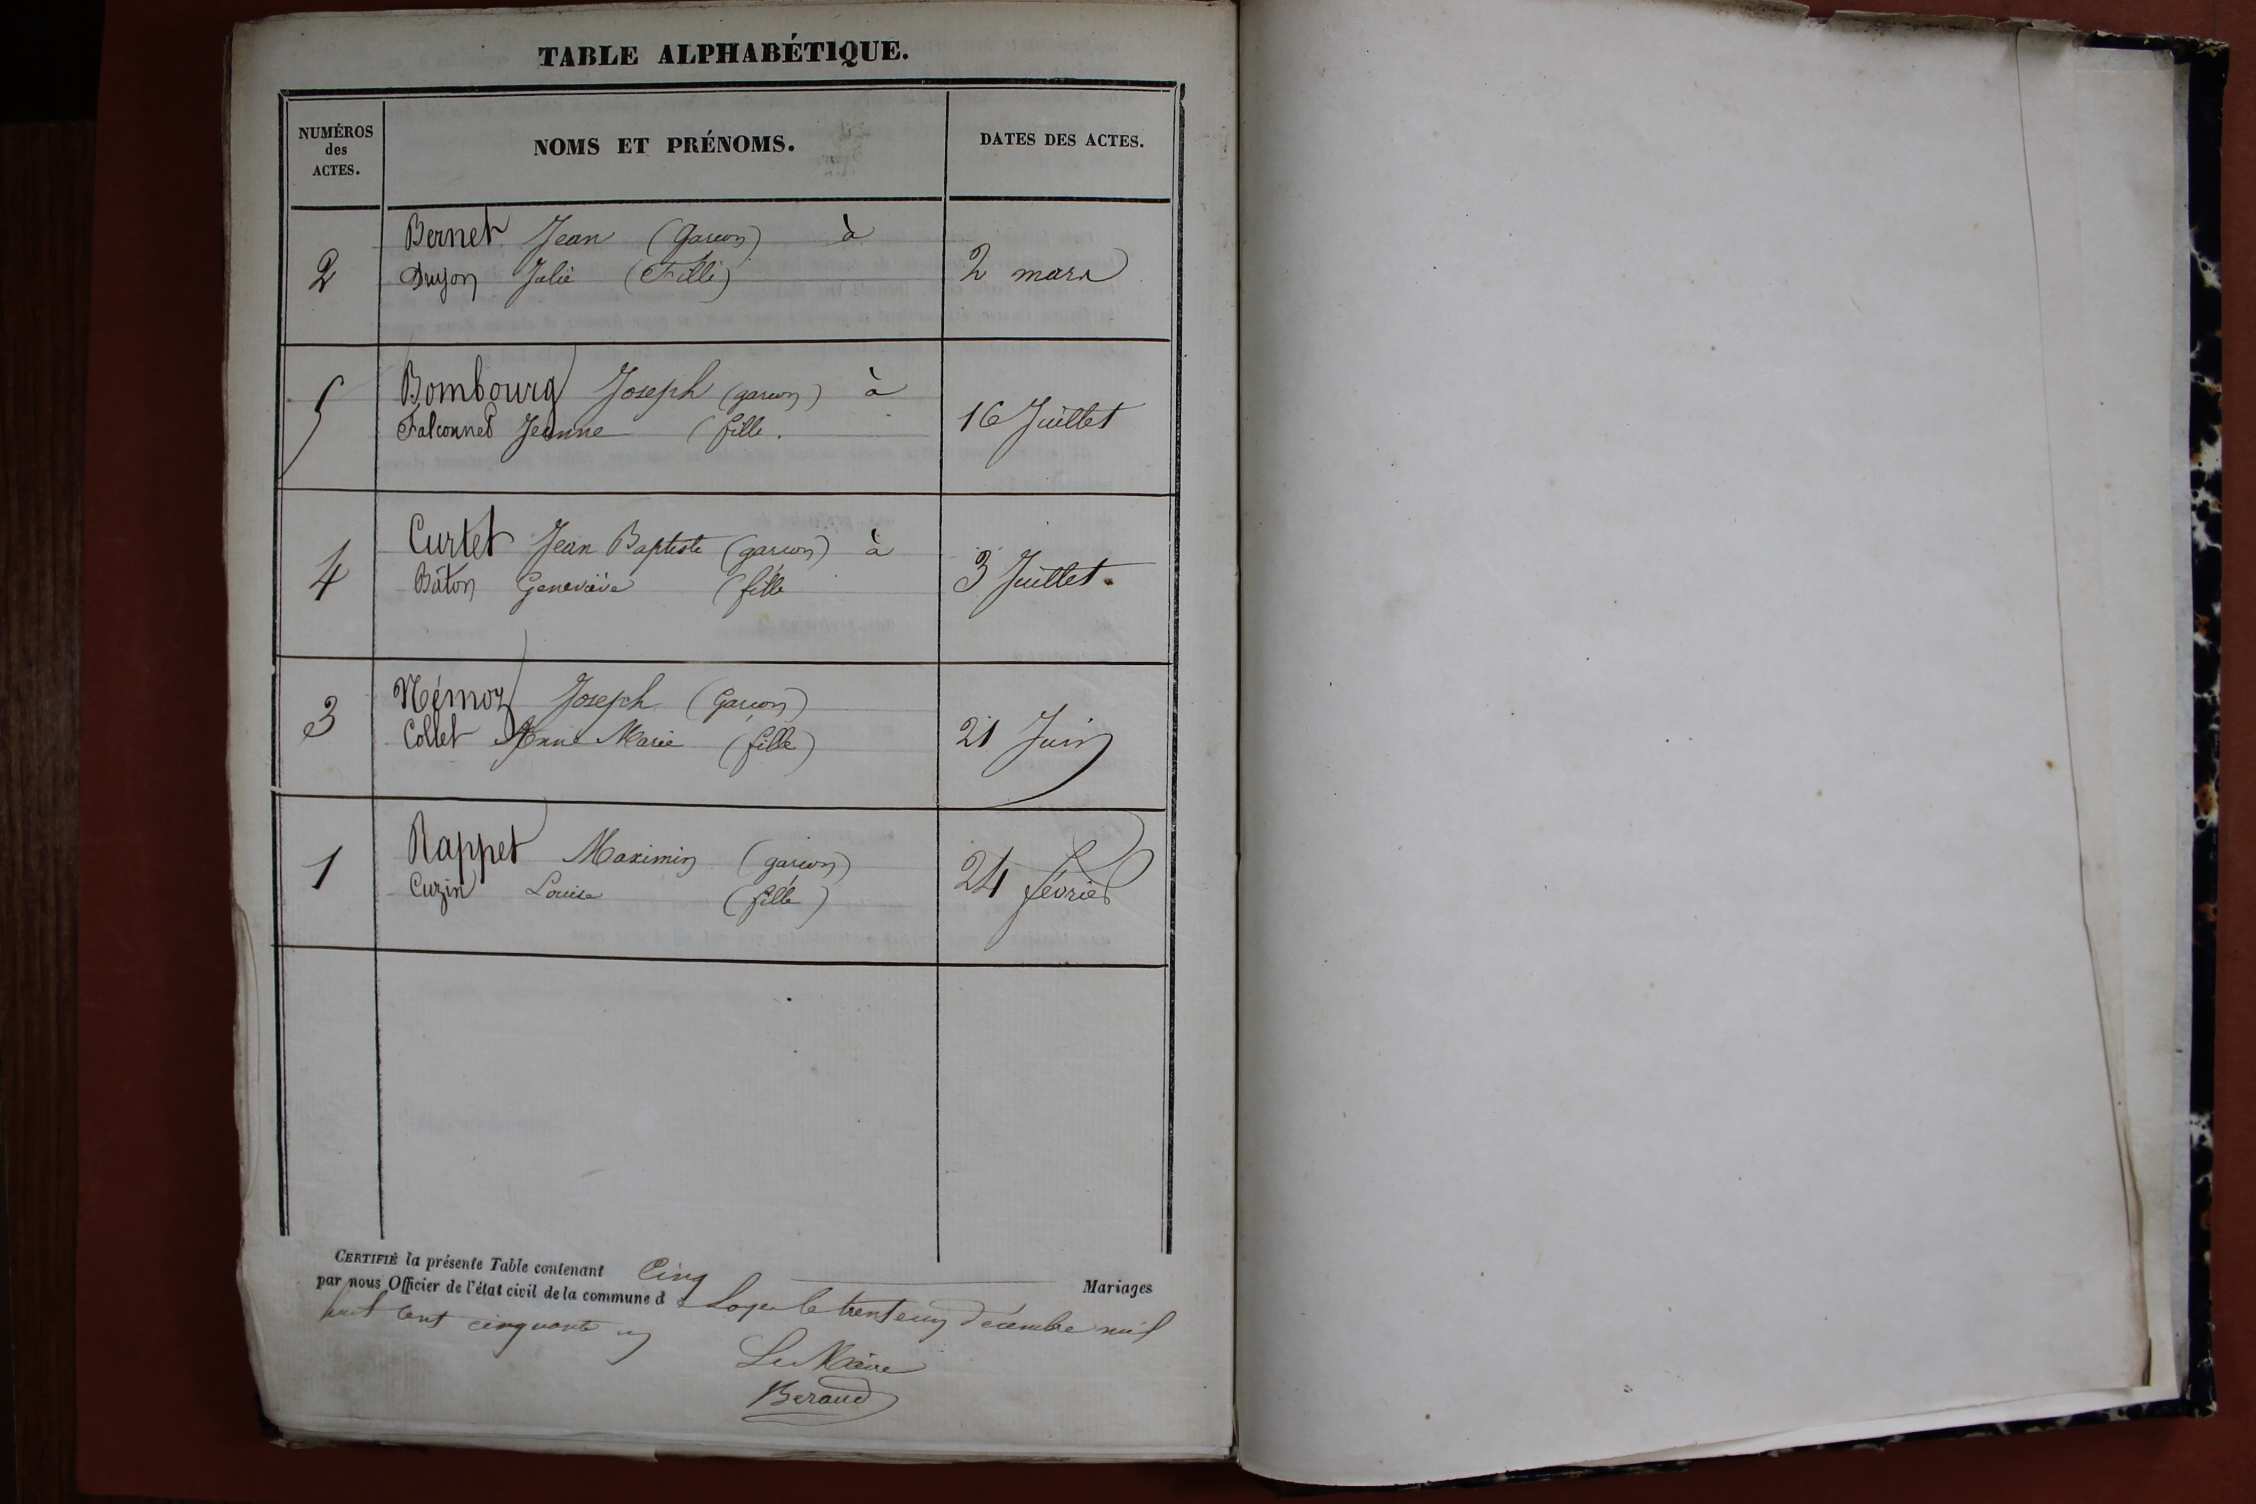 TABLE ALPHABÉTIQUE.
NUMÉROS
des
ACTES.
NOMS ET PRÉNOMS.
DATES DES ACTES.
Bernet Jean (Garcon) à
2
Julie (Fille)
2 mars
Bombourg Joseph (garcon) à
5
Falconnet Jeanne (fille.
16 Juillet
Curtet Jean Baptiste (garcon) à
4
Bâton Geneviève (fille
3 Juillet.
Némoz Joseph (Garcon)
3
Collet Anne Marie (fille)
21 Juin
Rappet Maximin (garcon)
1
Cuzin Louise (fille)
24 février
CERTIFIÉ la présente Table contenant Cinq Mariages
par nous Officier de l'état civil de la commune d Loyes le trente un décembre mil
huit cent cinquante un
Le Maire
Beraud